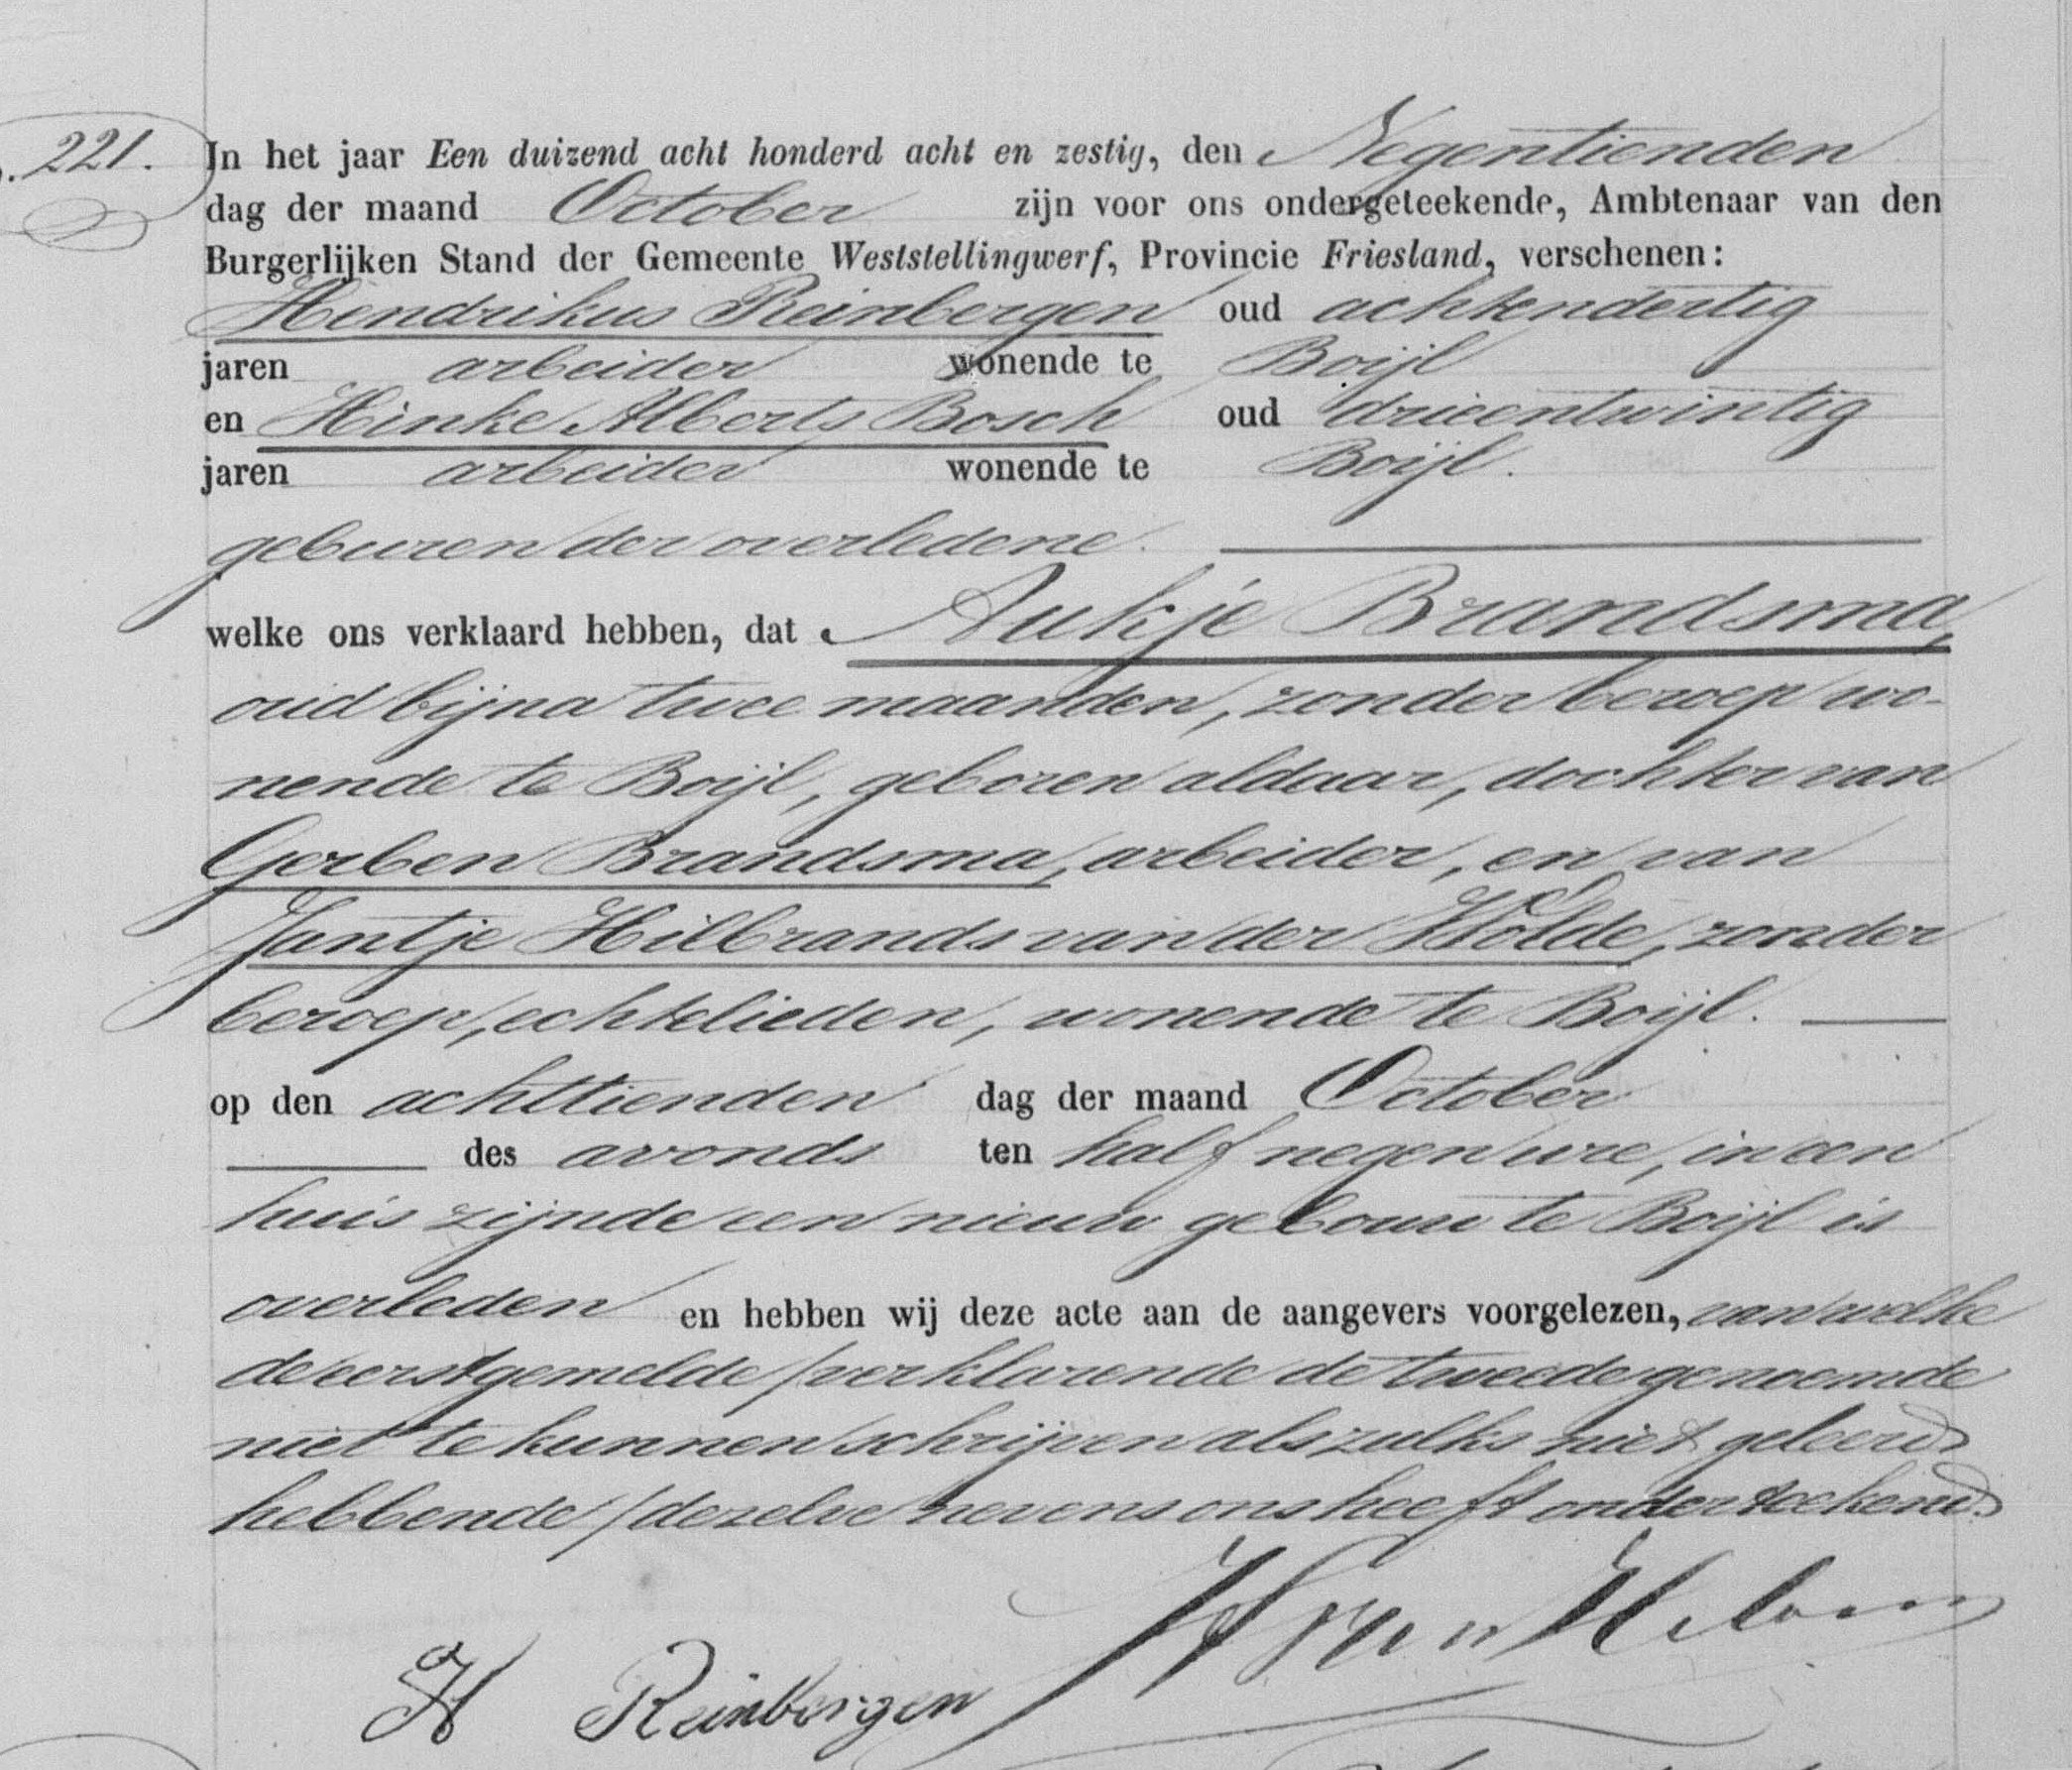 221. In het jaar Een duizend acht honderd acht en zestig, den Negentienden
dag der maand October zijn voor ons ondergeteekende, Ambtenaar van den
Burgerlijken Stand der Gemeente Weststellingwerf, Provincie Friesland, verschenen:
Hendrikus Reinbergen oud achtendertig
jaren arbeider wonende te Boijl
en Hinke Alberts Bosch oud drieentwintig
jaren arbeider wonende te Boijl.
geburen der overledene.
welke ons verklaard hebben, dat Aukje Brandsma,
oud bijna twee maanden, zonder beroep wo-
nende te Boijl, geboren aldaar, dochter van
Gerben Brandsma, arbeider, en van
Jantje Hilbrands van der Wolde, zonder
beroep, echtelieden, wonende te Boijl.
op den achttienden dag der maand October
des avonds ten half negen ure, in een
huis zijnde een nieuw gebouw te Boijl is
overleden en hebben wij deze acte aan de aangevers voorgelezen, van welke
de eerstgemelde /verklarende de tweedegenoemde
niet te kunnen schrijven als zulks niet geleerd
hebbende/ dezelve nevens ons heeft onderteekend.
H Reinbergen